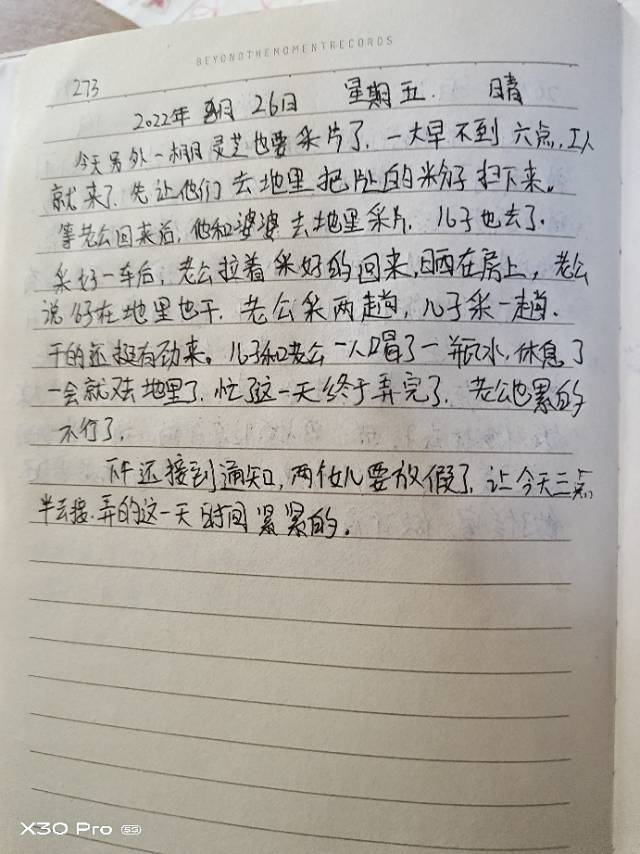 BEYONDTHEMOMENTRECORDS
273
2022年 8月 26日 星期五. 晴
今天另外一棚灵芝也要采片了. 一大早不到六点,工人
就来了.先让他们去地里把片上的粉子扫下来。
等老公回来后,他和婆婆去地里采片. 儿子也去了.
采好一车后,老公拉着采好的回来,晒在房上,老公
说好在地里也干. 老公采两趟,儿子采一趟.
干的还挺有劲来。儿子和老公一人喝了一瓶水,休息了
一会就又去地里了.忙了这一天终于弄完了. 老公也累的
不行了.
下午还接到通知,两个女儿要放假了.让今天三点
半去接.弄的这一天时间紧紧的。
X30 Pro 5G